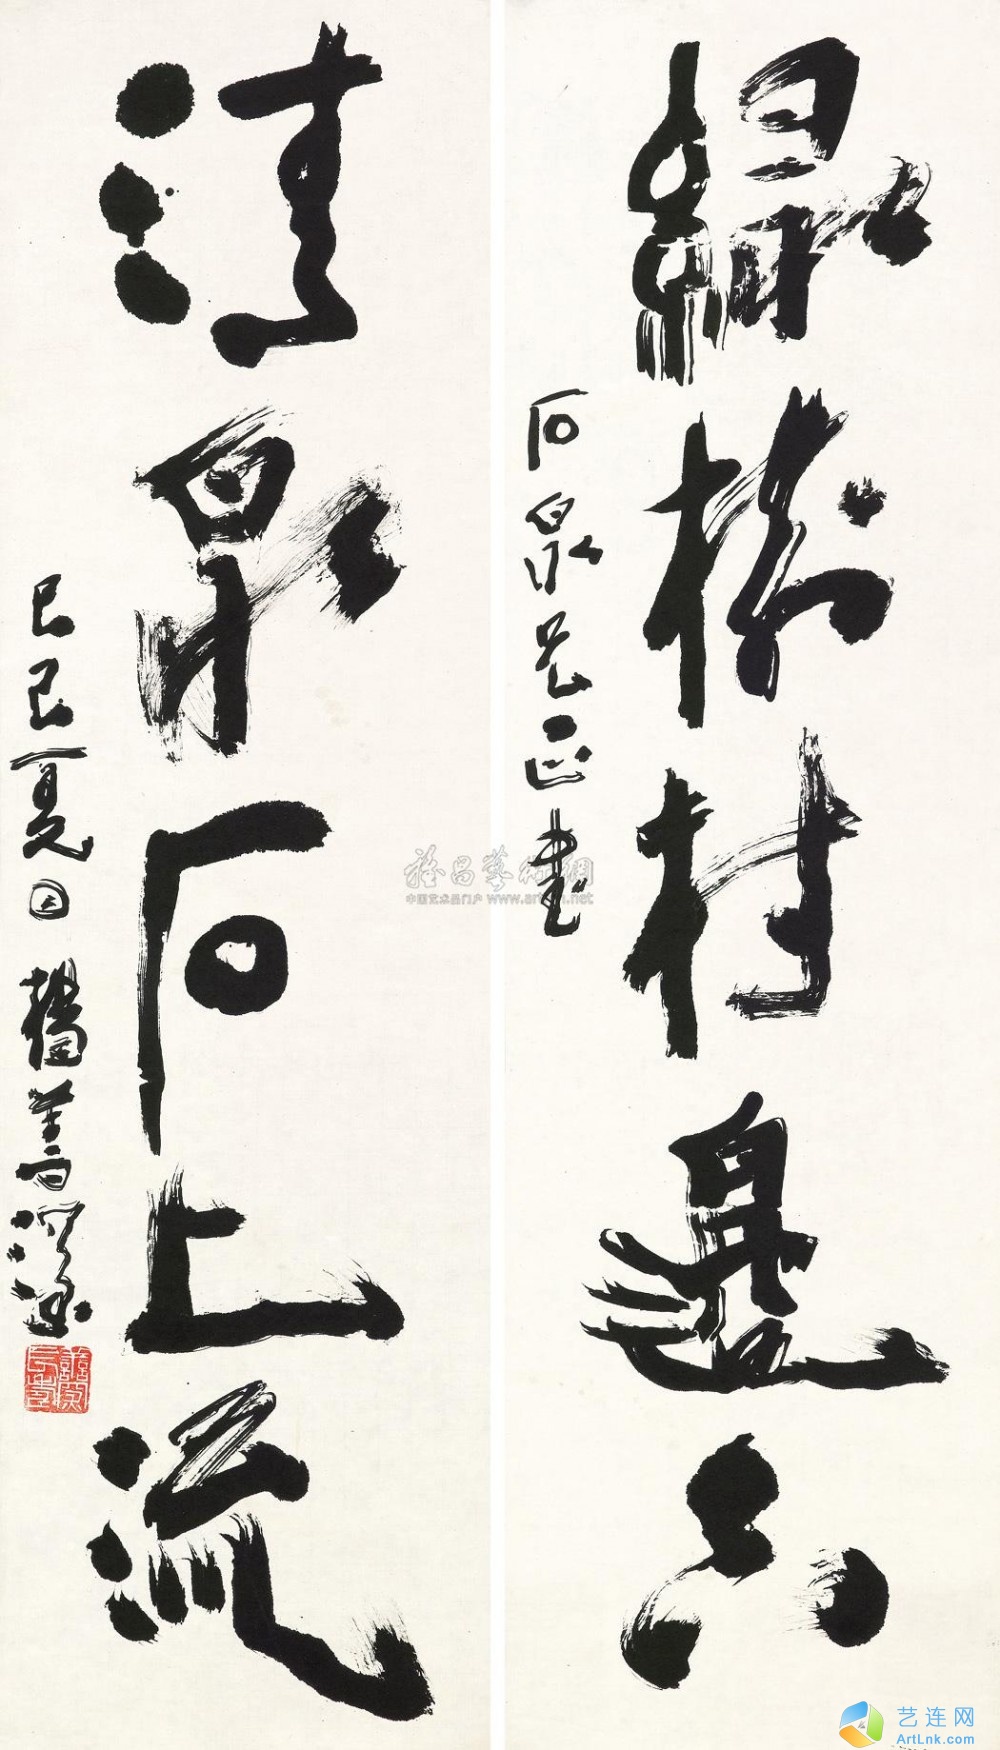 綠樹村邊合
石泉兄正書
清泉石上流
己巳夏日 楊善深塗
雅昌藝術網
中国艺术品门户 www.artron.net
艺连网
ArtLnk.com